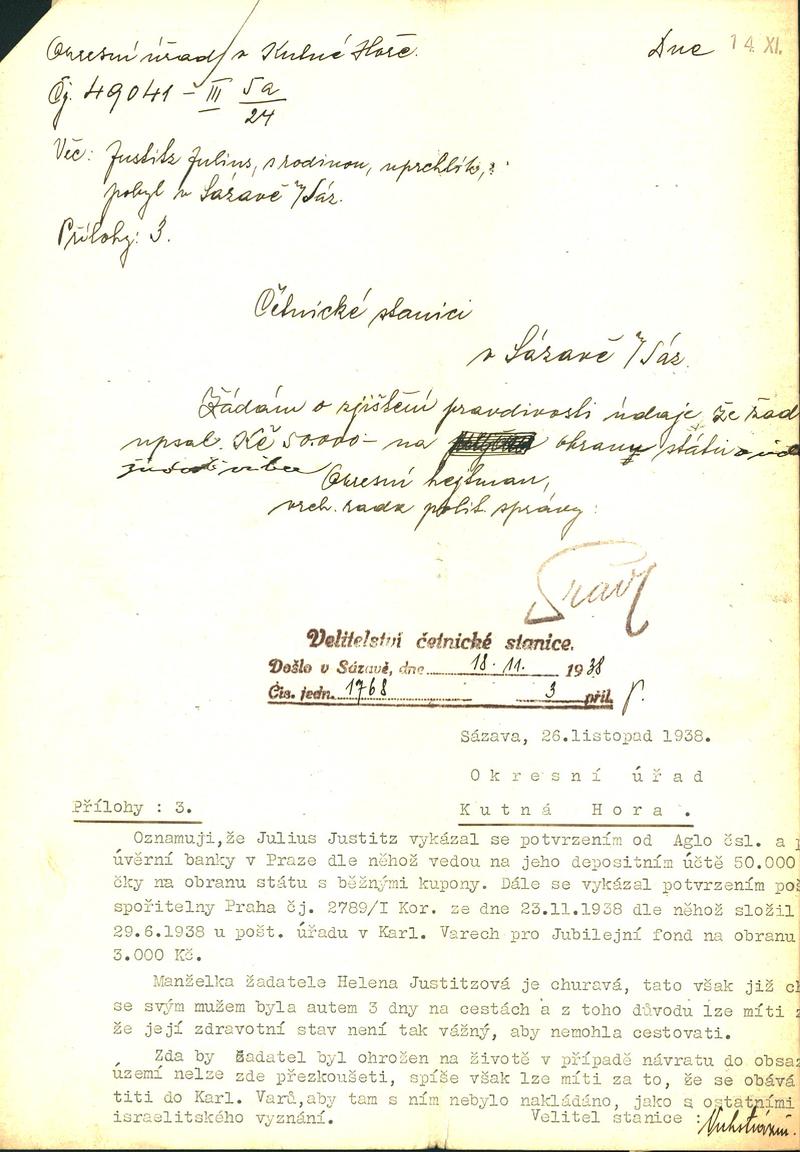 Okresní úřad v Kutné Hoře.
Dne 14. XI.
Čj. 49041 – III 5a/24
Věc: Justitz Julius, s rodinou, uprchlík,
pobyt v Sázavě n/Sáz.
Přílohy: 3.
Četnické stanici
v Sázavě n/Sáz.
Žádám o zjištění pravdivosti údaje, že žad
upsal Kč 50.000– na obranu státu
Okresní hejtman,
vrch. rada polit. správy:
Velitelství četnické stanice.
Došlo v Sázavě, dne 18. 11. 1938
Čís. jedn. 1768 3 příl.
Sázava, 26.listopad 1938.
Okresní úřad
Přílohy : 3.
Kutná Hora.
Oznamuji,že Julius Justitz vykázal se potvrzením od Aglo čsl. a p
úvěrní banky v Praze dle něhož vedou na jeho depositním účtě 50.000
čky na obranu státu s běžnými kupony. Dále se vykázal potvrzením poš
spořitelny Praha čj. 2789/I Kor. ze dne 23.11.1938 dle něhož složil
29.6.1938 u pošt. úřadu v Karl. Varech pro Jubilejní fond na obranu
3.000 Kč.
Manželka žadatele Helena Justitzová je churavá, tato však již ch
se svým mužem byla autem 3 dny na cestách a z toho důvodu lze míti z
že její zdravotní stav není tak vážný, aby nemohla cestovati.
Zda by žadatel byl ohrožen na životě v případě návratu do obsaz
území nelze zde přezkoušeti, spíše však lze míti za to, že se obává
titi do Karl. Varů,aby tam s ním nebylo nakládáno, jako s ostatními
israelitského vyznání. Velitel stanice :